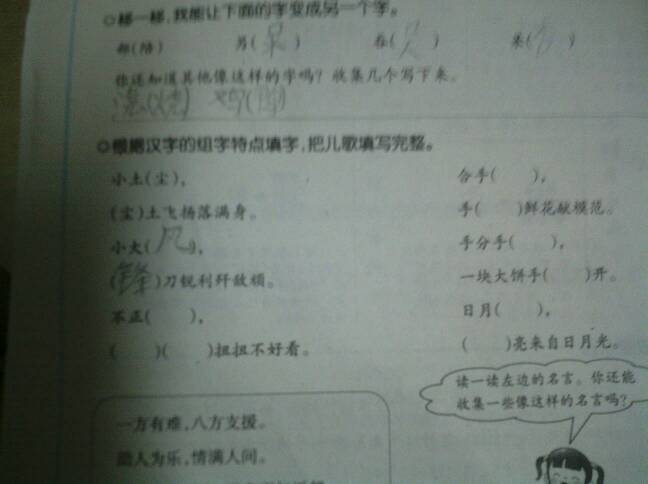 ○移一移,我能让下面的字变成另一个字。
部(陪) 另( ) 在( ) 果( )
你还知道其他像这样的字吗?收集几个写下来。
○根据汉字的组字特点填字,把儿歌填写完整。
小土(尘), 合手( ),
(尘)土飞扬落满身。 手( )鲜花献模范。
小大( ), 手分手( ),
(锋)刀锐利歼敌顽。 一块大饼手( )开。
不正( ), 日月( ),
( )( )扭扭不好看。 ( )亮来自日月光。
读一读左边的名言。你还能
收集一些像这样的名言吗?
一方有难,八方支援。
助人为乐,情满人间。